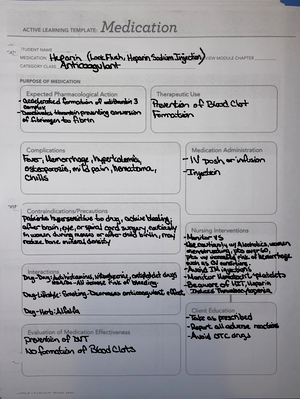 ACTIVE LEARNING TEMPLATE: Medication
STUDENT NAME
MEDICATION Heparin (Lock Flush, Heparin Sodium Injection) REVIEW MODULE CHAPTER
CATEGORY CLASS Anticoagulant
PURPOSE OF MEDICATION
Expected Pharmacological Action
- Accelerated formation of antithrombin 3
complex
- Deactivates thrombin preventing conversion
of fibrinogen to fibrin
Therapeutic Use
Prevention of Blood Clot
Formation
Complications
Fever, Hemorrhage, hyperkalemia,
osteoporosis, mild pain, hematoma,
Chills
Medication Administration
- IV push or infusion
- Injection
Contraindications/Precautions
Patients hypersensitive to drug, active bleeding,
after brain, eye, or spinal cord surgery, cautiously
in women during menses or after child birth, may
reduce bone mineral density
Nursing Interventions
- Monitor VS
- Use cautiously w/ Alcoholics, women
menstruating, pts over 60,
pts w/ risk of hemorrhage
- Avoid IM injections
- Monitor Hematocrit + platelets
- Beware of HIT, Heparin
Induced Thrombocytopenia
Interactions
Drug-Drug: Antihistamines, antiplatelet drugs
NSAIDs - All increase risk of bleeding.
Drug-Lifestyle: Smoking-Decreases anticoagulant effect
Drug-Herb: Alfalfa
Client Education
- Take as prescribed
- Report all adverse reactions
- Avoid OTC drugs
Evaluation of Medication Effectiveness
Prevention of DVT
No Formation of Blood Clots